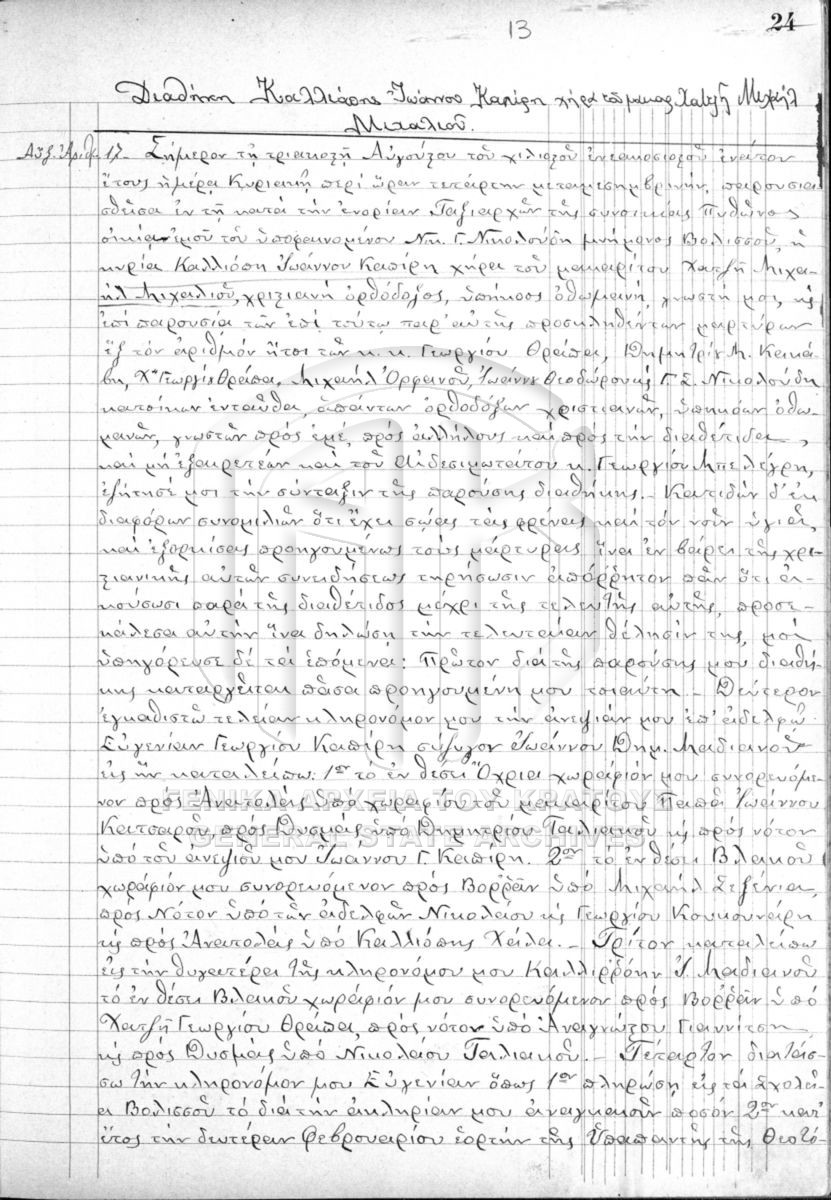 13
24
Διαθήκη Καλλιόπης Ἰωάννου Καπίρη χήρα τοῦ μακαρ. Χατζῆ Μιχαήλ
Μιχαλιοῦ.
Αὔξ. Ἀριθ. 17. Σήμερον τῇ τριακοστῇ Αὐγούστου τοῦ χιλιοστοῦ ἐνεακοσιοστοῦ ἐνάτου
ἔτους ἡμέρᾳ Κυριακῇ περί ὥραν τετάρτην μεταμεσημβρινήν, παρουσια-
σθεῖσα ἐν τῇ κατά τήν ἐνορίαν Ταξιαρχῶν τῆς συνοικίας Πυθῶνος
οἰκίᾳ ἐμοῦ τοῦ ὑποφαινομένου Νικ. Γ. Νικολούδη μνήμονος Βολισσοῦ, ἡ
κυρία Καλλιόπη Ἰωάννου Καπίρη χήρα τοῦ μακαρίτου Χατζῆ Μιχα-
ήλ Μιχαλιοῦ, χριστιανή ὀρθόδοξος, ὑπήκοος ὀθωμανή, γνωστή μοι, κ
ἐπί παρουσίᾳ τῶν ἐπί τούτῳ παρ' αὐτῆς προσκληθέντων μαρτύρων
ἕξ τόν ἀριθμόν ἤτοι τῶν κ. κ. Γεωργίου Θράπα, Δημητρίου Μ. Κακά-
βη, Χ" Γεωργίου Θράπα, Μιχαήλ Ὀρφανοῦ, Ἰωάννου Θεοδώρου κ Γ. Σ. Νικολούδη
κατοίκων ἐνταῦθα, ἁπάντων ὀρθοδόξων χριστιανῶν, ὑπηκόων ὀθω-
μανῶν, γνωστῶν πρός ἐμέ, πρός ἀλλήλους καί πρός τήν διαθέτιδα,
καί μή ἐξαιρετέων καί τοῦ Αἰδεσιμωτάτου κ. Γεωργίου Μπελέγρη,
ἐζήτησέ μοι τήν σύνταξιν τῆς παρούσης διαθήκης. Κατιδών δ' ἐκ
διαφόρων συνομιλιῶν ὅτι ἔχει σώας τάς φρένας καί τόν νοῦν ὑγιᾶ,
καί ἐξορκίσας προηγουμένως τούς μάρτυρας ἵνα ἐν βάρει τῆς χρι-
στιανικῆς αὐτῶν συνειδήσεως τηρήσωσιν ἀπόρρητον πᾶν ὅτι ἀ-
κούσωσι παρά τῆς διαθέτιδος μέχρι τῆς τελευτῆς αὐτῆς, προσε-
κάλεσα αὐτήν ἵνα δηλώσῃ τήν τελευταίαν θέλησίν της, μοί
ὑπηγόρευσε δέ τά ἑπόμενα: Πρῶτον διά τῆς παρούσης μου διαθή-
κης καταργεῖται πᾶσα προηγουμένη μου τοιαύτη. Δεύτερον
ἐγκαθιστῶ τελείαν κληρονόμον μου τήν ἀνεψιάν μου ἐπ' ἀδελφῷ
Εὐγενίαν Γεωργίου Καπίρη σύζυγον Ἰωάννου Δημ. Μαδιανοῦ
εἰς ἥν καταλείπω: 1ον τό ἐν θέσει Ὄχρια χωράφιόν μου συνορευόμε-
νον πρός Ἀνατολάς ὑπό χωραφίου τοῦ μακαρίτου Παπᾶ Ἰωάννου
Κατσαροῦ, πρός Δυσμάς ὑπό Δημητρίου Ταλιακοῦ κ πρός νότον
ὑπό τοῦ ἀνεψιοῦ μου Ἰωάννου Γ. Καπίρη. 2ον τό ἐν θέσει Βλακοῦ
χωράφιόν μου συνορευόμενον πρός Βορρᾶν ὑπό Μιχαήλ Σεξένια,
πρός Νότον ὑπό τῶν ἀδελφῶν Νικολάου κ Γεωργίου Κουκουνάρη
κ πρός Ἀνατολάς ὑπό Καλλιόπης Χαίλα. Τρίτον καταλείπω
εἰς τήν θυγατέρα τῆς κληρονόμου μου Καλλιρρόην Ἰ. Μαδιανοῦ
τό ἐν θέσει Βλακοῦ χωράφιόν μου συνορευόμενον πρός Βορρᾶν ὑπό
Χατζῆ Γεωργίου Θράπα, πρός νότον ὑπό Ἀναγνώστου Γιαννίτση
κ πρός Δυσμάς ὑπό Νικολάου Ταλιακοῦ. Τέταρτον διατάσ-
σω τήν κληρονόμον μου Εὐγενίαν ὅπως 1ον πληρώσῃ εἰς τά Σχολεῖ-
α Βολισσοῦ τό διά τήν ἀκληρίαν μου ἀναγκαιοῦν ποσόν 2ον κατ'
ἔτος τήν δευτέραν Φεβρουαρίου ἑορτήν τῆς Ὑπαπαντῆς τῆς Θεοτό-
ΓΕΝΙΚΑ ΑΡΧΕΙΑ ΤΟΥ ΚΡΑΤΟΥΣ
GENERAL STATE ARCHIVES